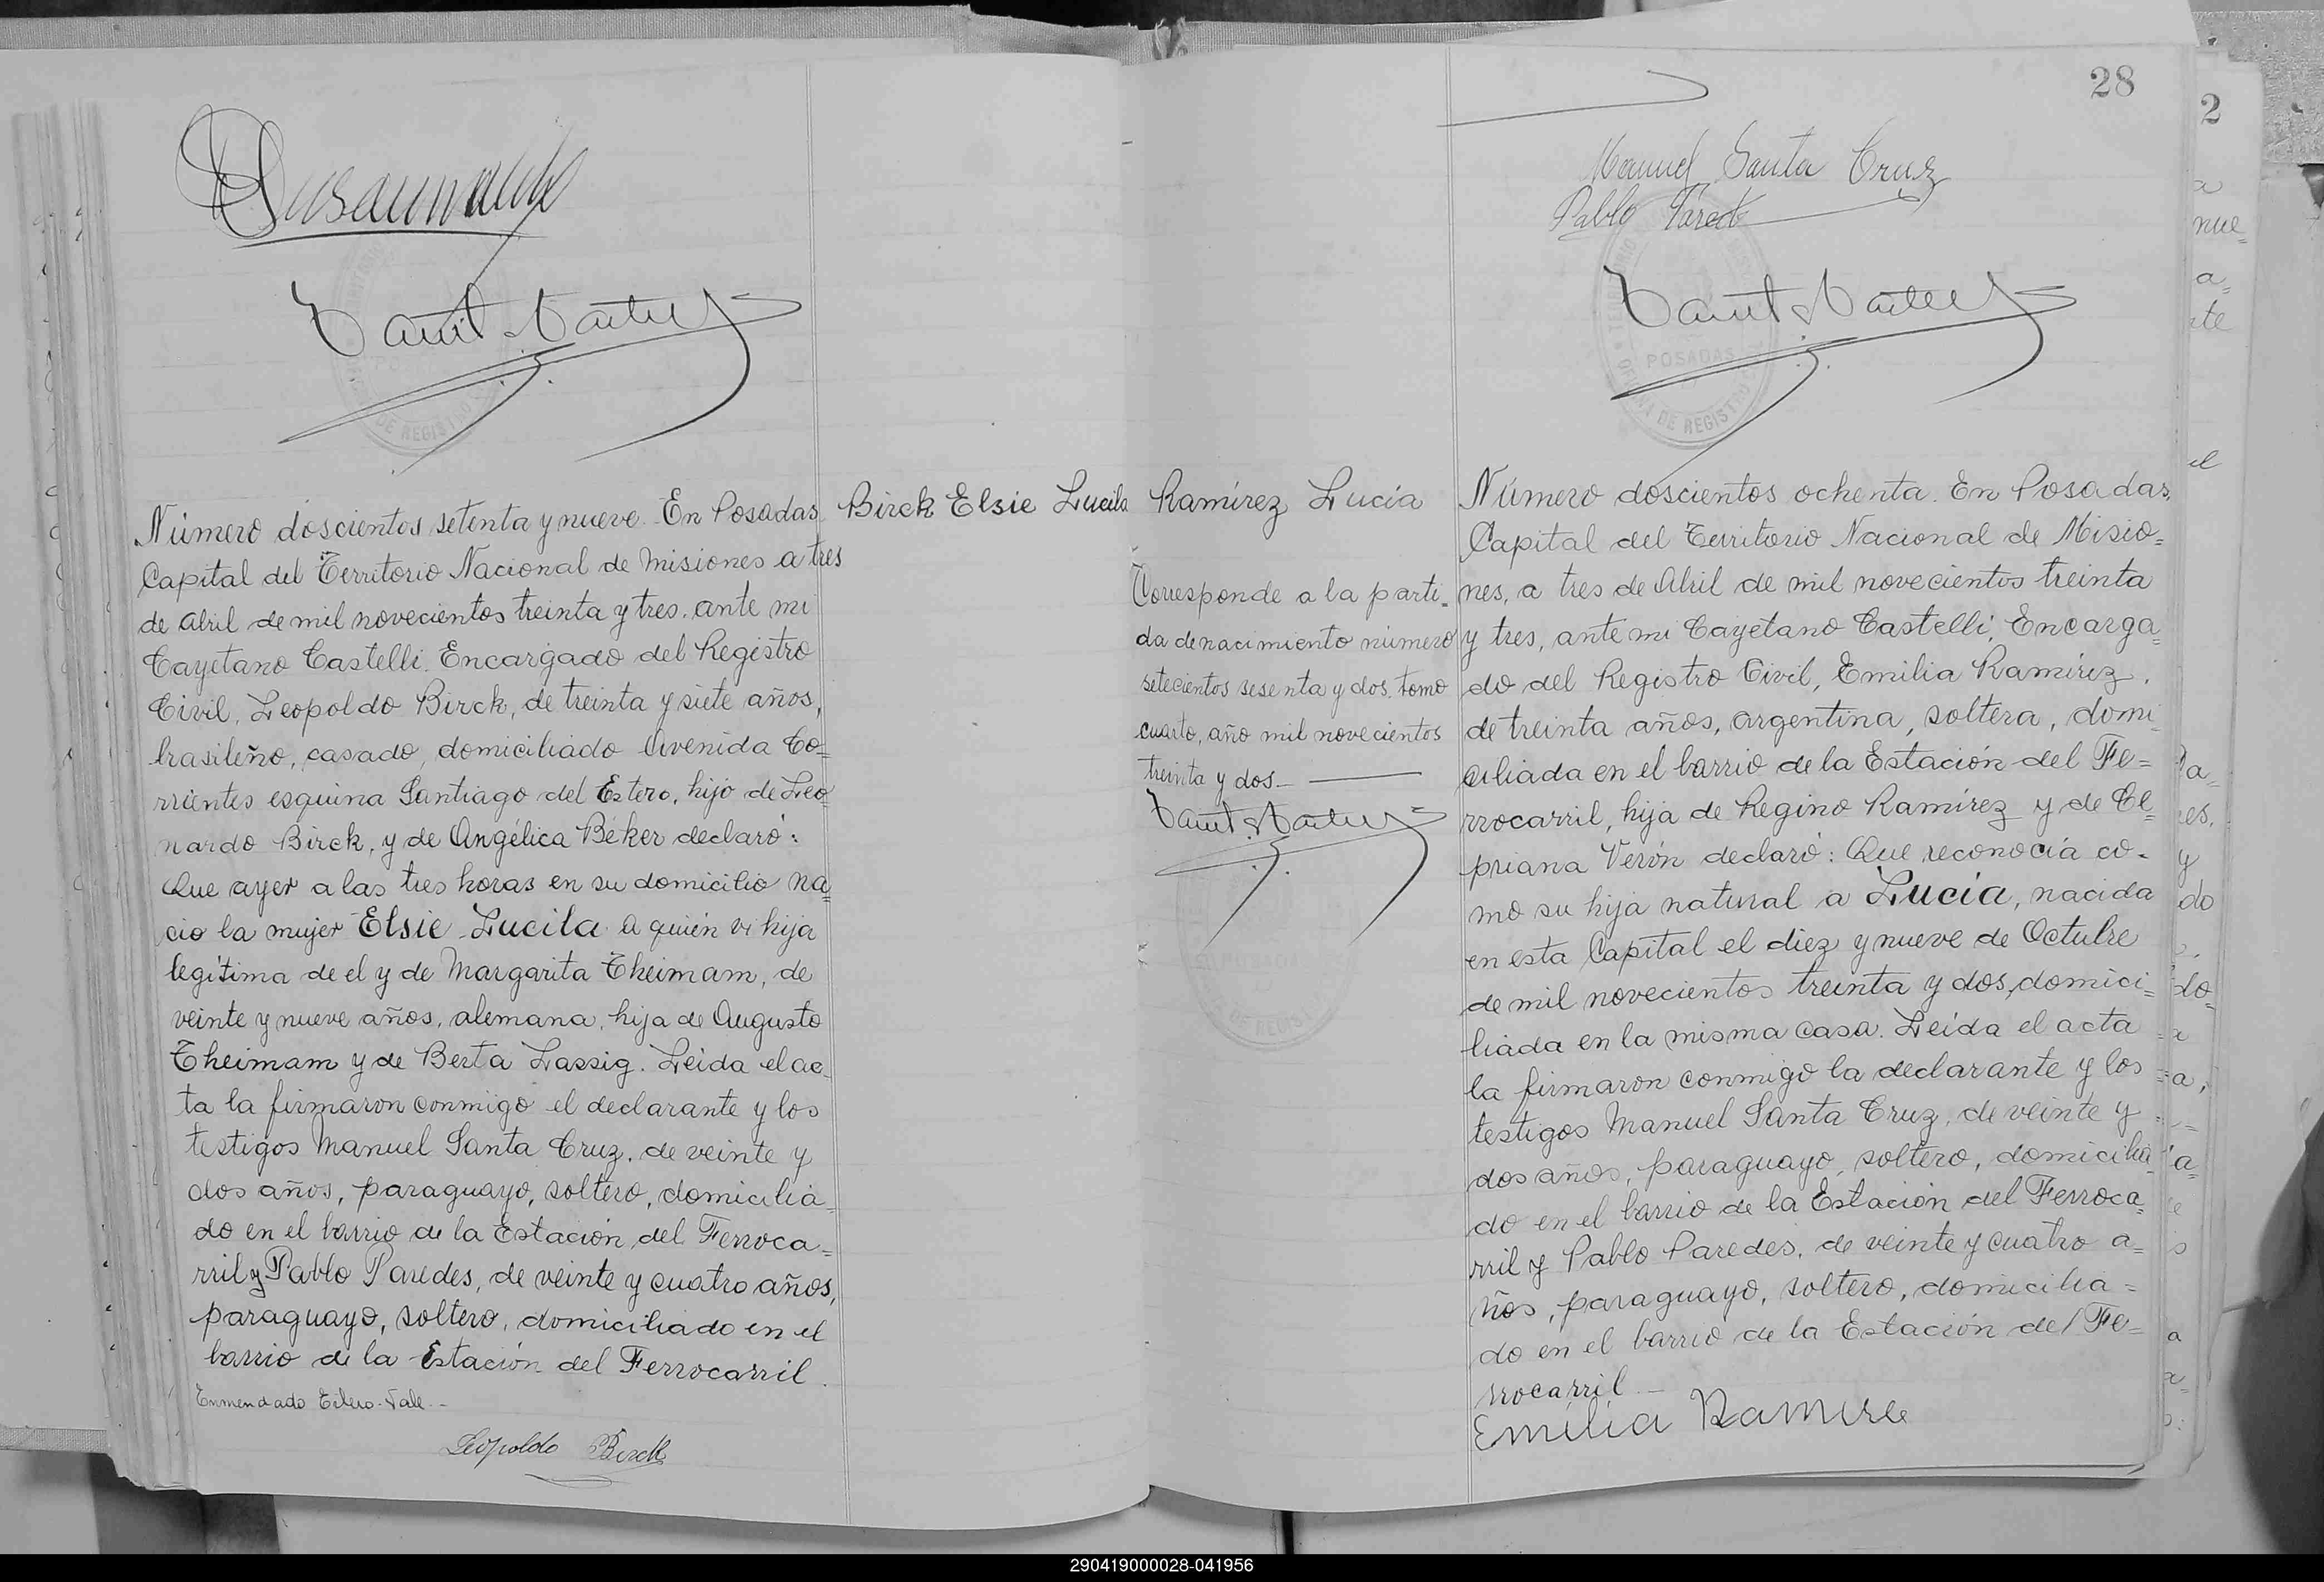 Número doscientos setenta y nueve. En Posadas
Capital del Territorio Nacional de Misiones a tres
de abril de mil novecientos treinta y tres. ante mi
Cayetano Castelli. Encargado del Registro
Civil, Leopoldo Birck, de treinta y siete años,
brasileño, casado, domiciliado Avenida Co=
rrientes esquina Santiago del Estero, hijo de Leo
nardo Birck, y de Angélica Béker declaró:
Que ayer a las tres horas en su domicilio na
cio la mujer Elsie Lucila a quién vi hija
legítima de el y de Margarita Theimam, de
veinte y nueve años, alemana, hija de Augusto
Theimam y de Berta Lassig. Leida el ac
ta la firmaron conmigo el declarante y los
testigos Manuel Santa Cruz, de veinte y
dos años, paraguayo, soltero, domicilia
do en el barrio de la Estación del Ferroca=
rril y Pablo Paredes, de veinte y cuatro años,
paraguayo, soltero, domiciliado en el
barrio de la Estación del Ferrocarril.
Enmendado Vale
Leopoldo Birck
Birck Elsie Lucila
Ramírez Lucía
Corresponde a la parti-
da de nacimiento número
setecientos sesenta y dos, tomo
cuarto, año mil novecientos
treinta y dos
28
Manuel Santa Cruz
Pablo Pared
POSADAS
DE REGIS
Número doscientos ochenta. En Posadas,
Capital del Territorio Nacional de Misio=
nes, a tres de Abril de mil novecientos treinta
y tres, ante mi Cayetano Castelli, Encarga
do del Registro Civil, Emilia Ramírez,
de treinta años, argentina, soltera, domi
ciliada en el barrio de la Estación del Fe=
rrocarril, hija de Regino Ramírez y de Ci
priana Verón declaró: Que reconocía co-
mo su hija natural a Lucía, nacida
en esta Capital el diez y nueve de Octubre
de mil novecientos treinta y dos, domici=
liada en la misma casa. Leída el acta
la firmaron conmigo la declarante y los
testigos Manuel Santa Cruz, de veinte y
dos años, paraguayo, soltero, domicilia
do en el barrio de la Estación del Ferroca=
rril y Pablo Paredes, de veinte y cuatro a=
ños, paraguayo, soltero, domicilia=
do en el barrio de la Estación del Fe=
rrocarril
Emilia Ramire
2
290419000028-041956